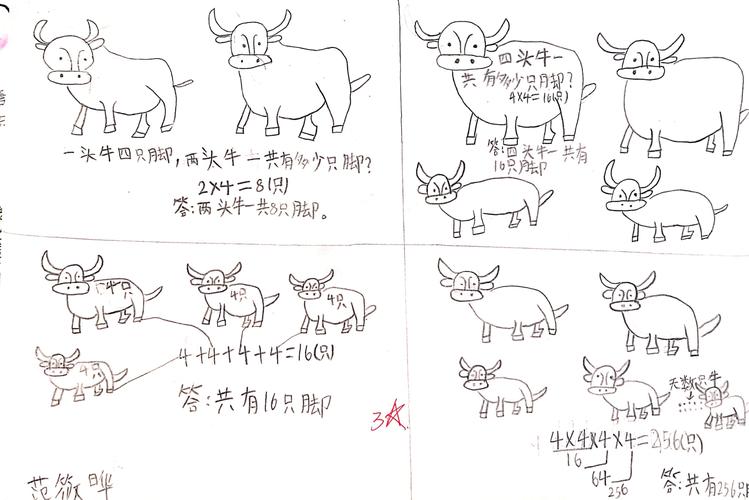 一头牛四只脚,两头牛一共有多少只脚?
2×4=8(只)
答:两头牛一共8只脚。
四头牛一
共有多少只脚?
4×4=16(只)
答:四头牛一共有
16只脚
4只
4只
4只
4只
4+4+4+4=16(只)
答:共有16只脚
3☆
无数只牛
4×4×4×4=256(只)
16
64
256
答:共有256只